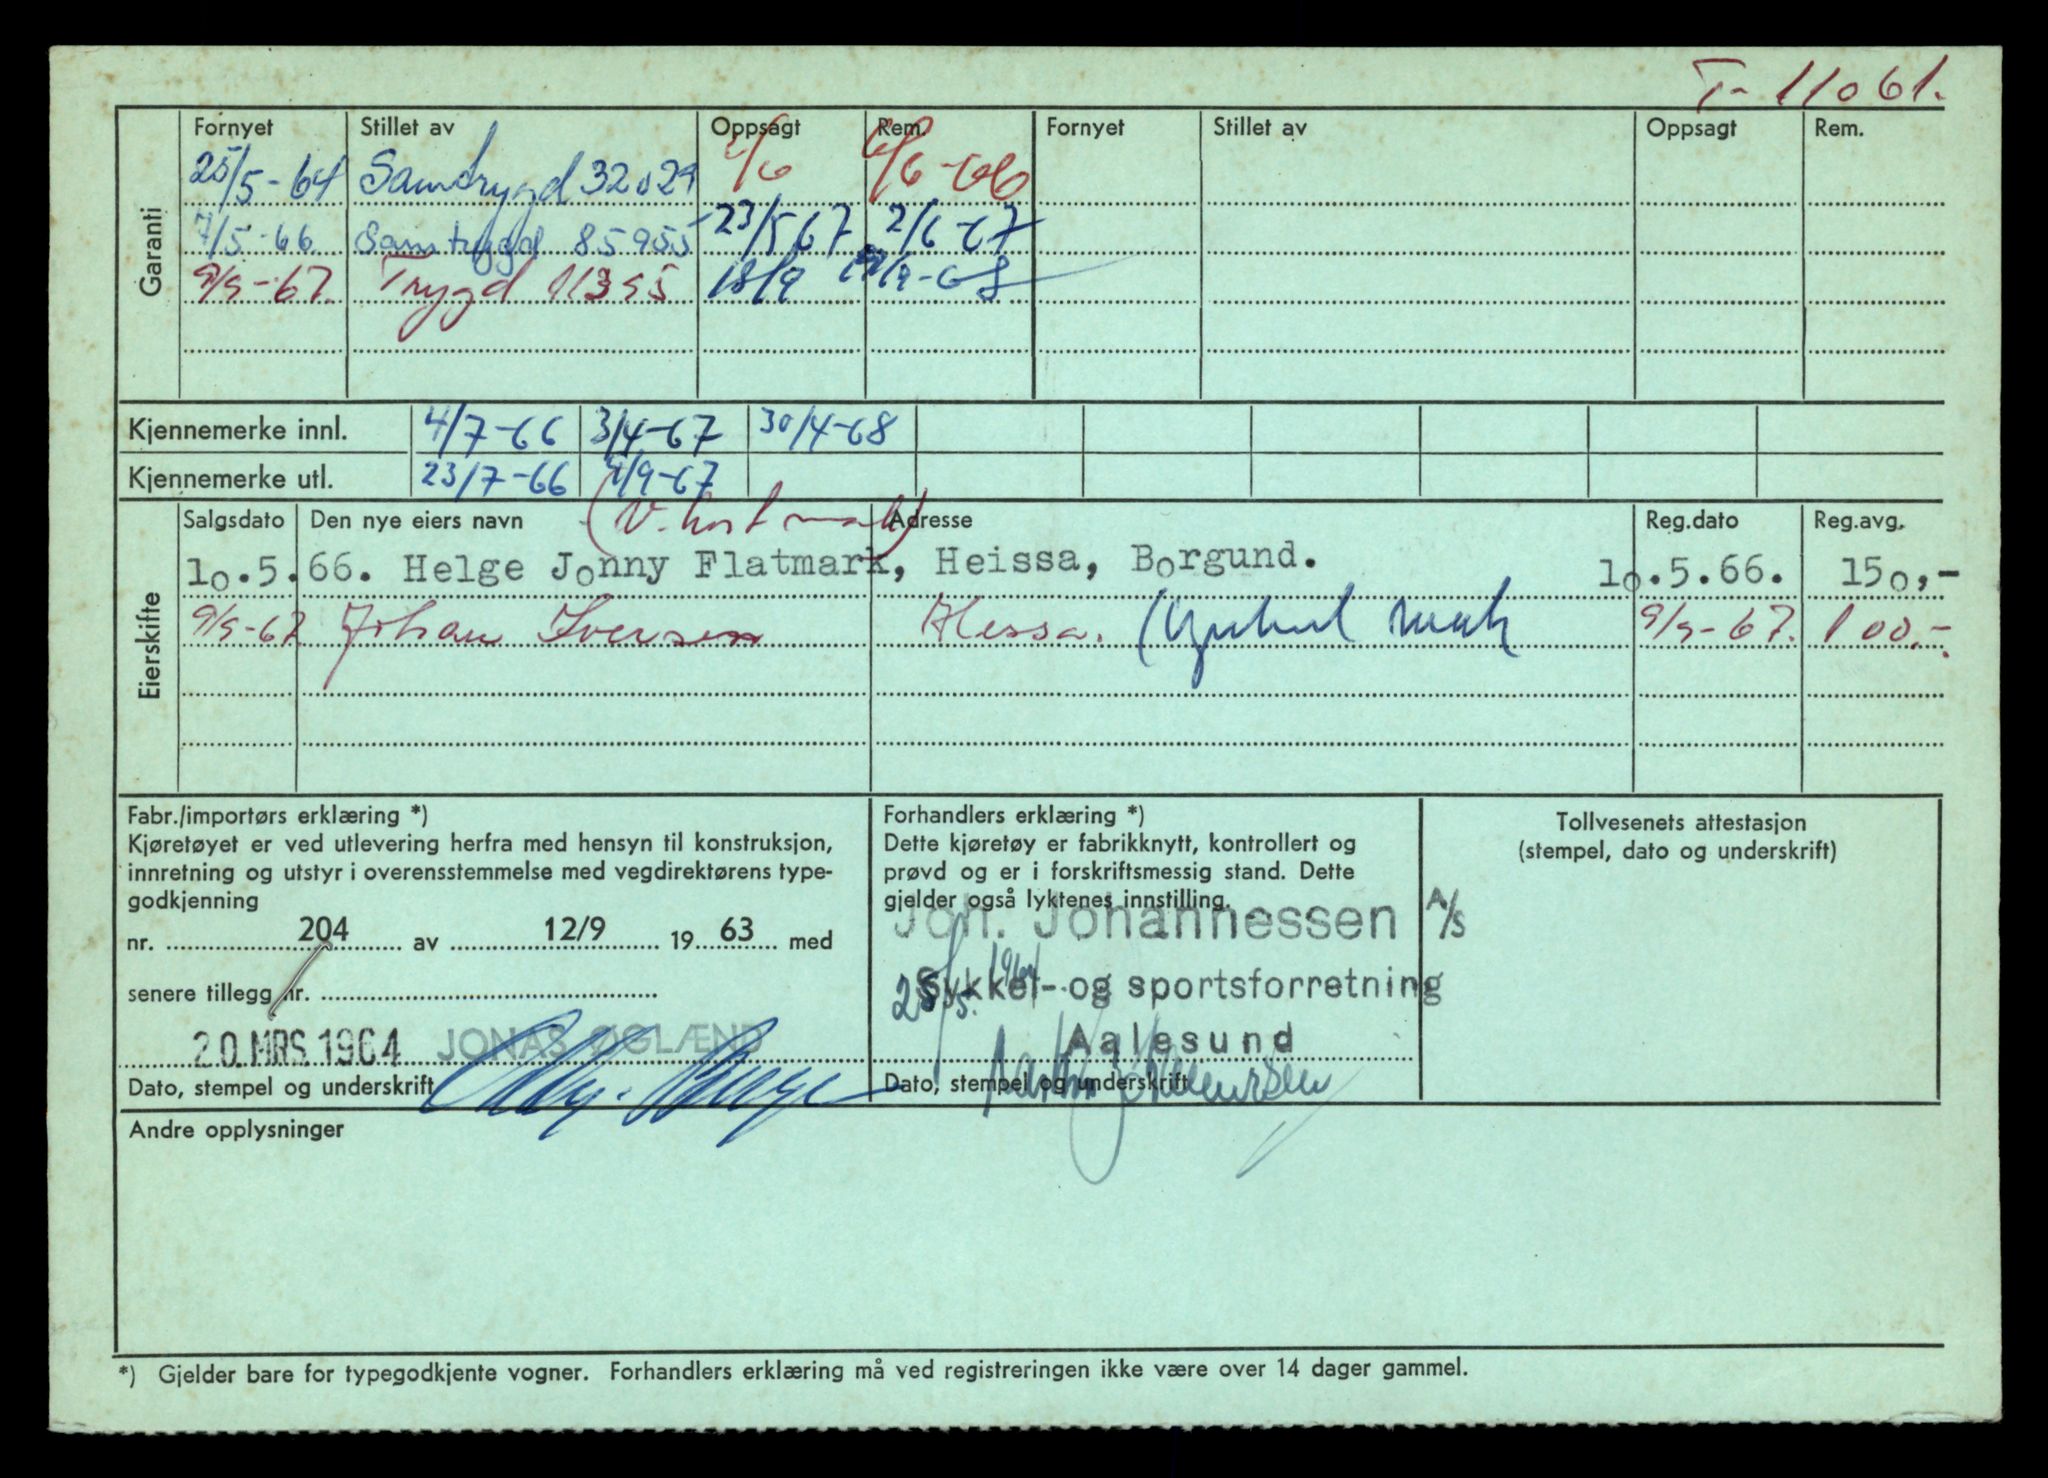 T-11061.
Fornyet Stillet av Oppsagt Rem. Fornyet Stillet av Oppsagt Rem.
Garanti
25/5-64 Samtrygd 32029 2/6 6/6-66
7/5-66 Samtrygd 85955 23/5 67 2/6-67
9/9-67. Trygd 11395 18/9 /9-68
Kjennemerke innl. 4/7-66 3/4-67 30/4-68
Kjennemerke utl. 23/7-66 9/9-67
Eierskifte
Salgsdato Den nye eiers navn Adresse Reg.dato Reg.avg.
10.5.66. Helge Jonny Flatmark, Heissa, Borgund. 10.5.66. 150,-
9/9-67 Johan Iversen Hessa. 9/9-67. 100.-
Fabr./importørs erklæring *)
Kjøretøyet er ved utlevering herfra med hensyn til konstruksjon,
innretning og utstyr i overensstemmelse med vegdirektørens type-
godkjenning
nr. 204 av 12/9 19 63 med
senere tillegg nr.
20.MRS.1964 JONAS ØGLÆND
Dato, stempel og underskrift
Forhandlers erklæring *)
Dette kjøretøy er fabrikknytt, kontrollert og
prøvd og er i forskriftsmessig stand. Dette
gjelder også lyktenes innstilling.
Joh. Johannessen A/S
Sykkel- og sportsforretning
25/5. 1964
Aalesund
Dato, stempel og underskrift
Tollvesenets attestasjon
(stempel, dato og underskrift)
Andre opplysninger
*) Gjelder bare for typegodkjente vogner. Forhandlers erklæring må ved registreringen ikke være over 14 dager gammel.